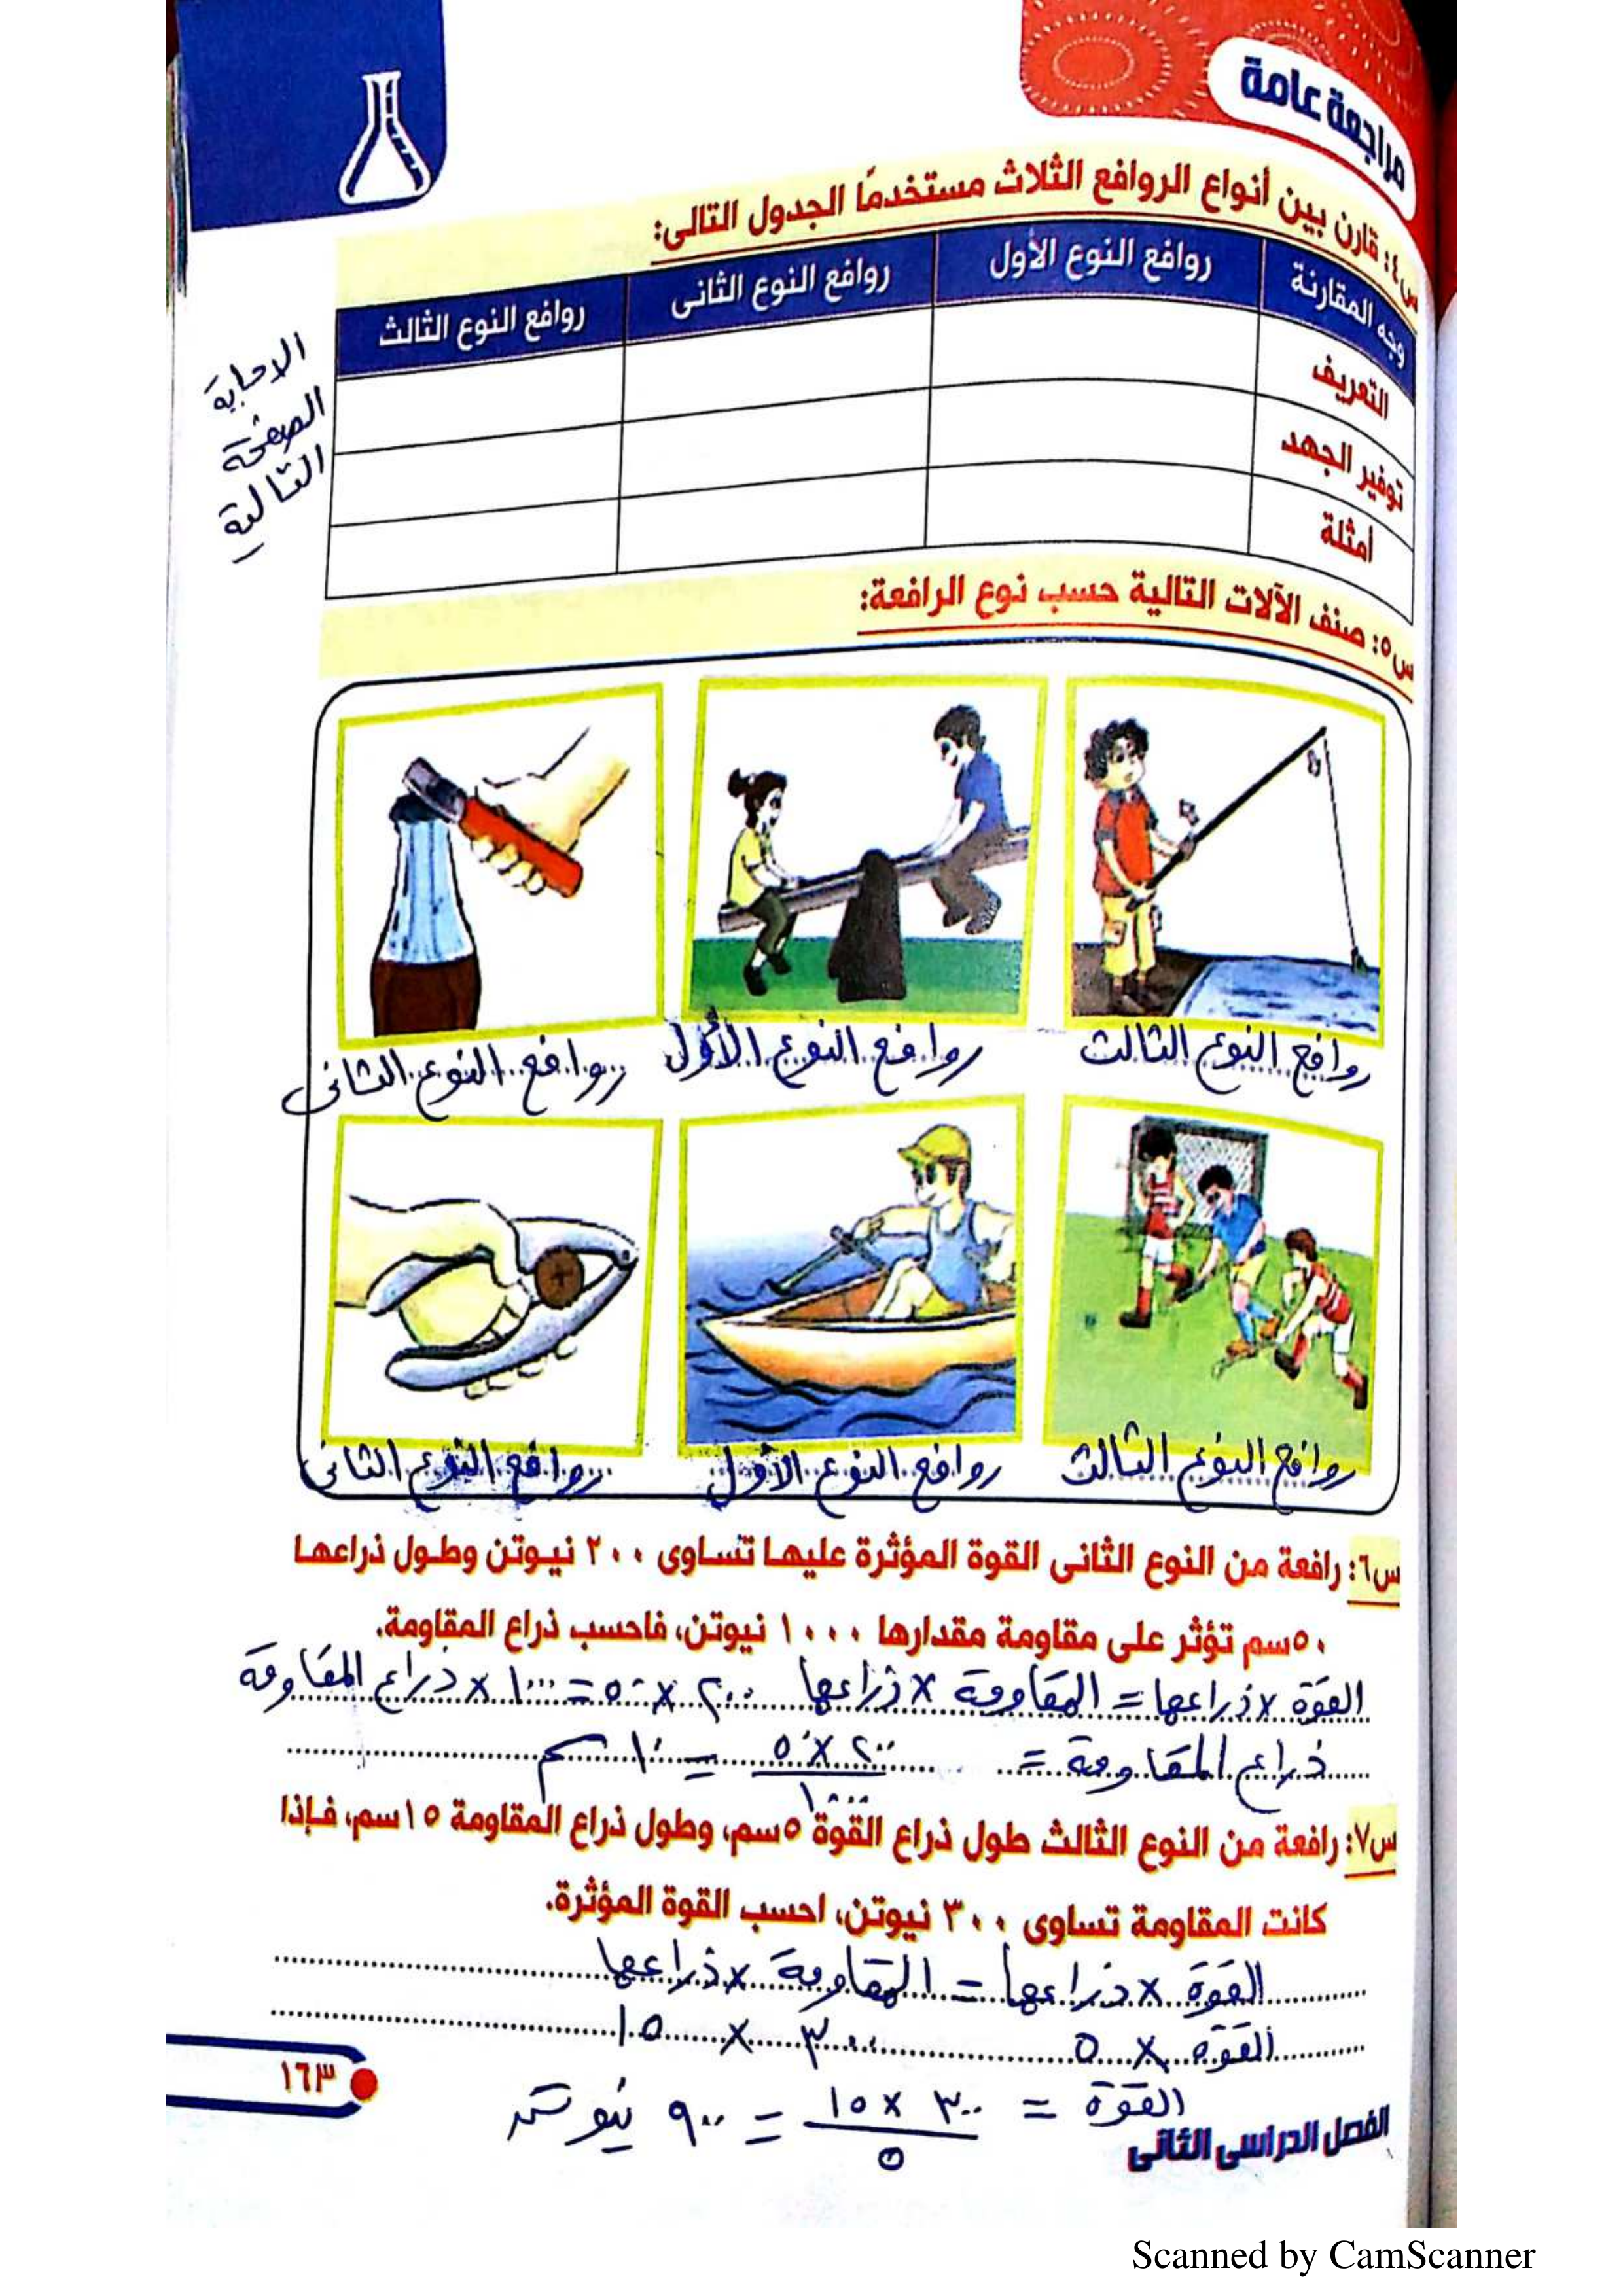 مراجعة عامة
س٤: قارن بين أنواع الروافع الثلاث مستخدمًا الجدول التالى:
وجه المقارنة روافع النوع الأول روافع النوع الثانى روافع النوع الثالث
التعريف
توفير الجهد
أمثلة
الاجابة
الصفحة
التالية
س٥: صنف الآلات التالية حسب نوع الرافعة:
روافع النوع الثالث روافع النوع الأول روافع النوع الثانى
روافع النوع الثالث روافع النوع الأول روافع النوع الثانى
س٦: رافعة من النوع الثانى القوة المؤثرة عليها تساوى ٢٠٠ نيوتن وطول ذراعها
٥٠سم تؤثر على مقاومة مقدارها ١٠٠٠ نيوتن، فاحسب ذراع المقاومة.
القوة × ذراعها = المقاومة × ذراعها ٢٠٠ × ٥٠ = ١٠٠٠ × ذراع المقاومة
ذراع المقاومة = ٢٠٠ × ٥٠ / ١٠٠٠ = ١٠ سم
س٧: رافعة من النوع الثالث طول ذراع القوة ٥سم، وطول ذراع المقاومة ١٥سم، فإذا
كانت المقاومة تساوى ٣٠٠ نيوتن، احسب القوة المؤثرة.
القوة × ذراعها = المقاومة × ذراعها
القوة × ٥ ٣٠٠ × ١٥
القوة = ٣٠٠ × ١٥ / ٥ = ٩٠٠ نيوتن
١٦٣
الفصل الدراسى الثانى
Scanned by CamScanner